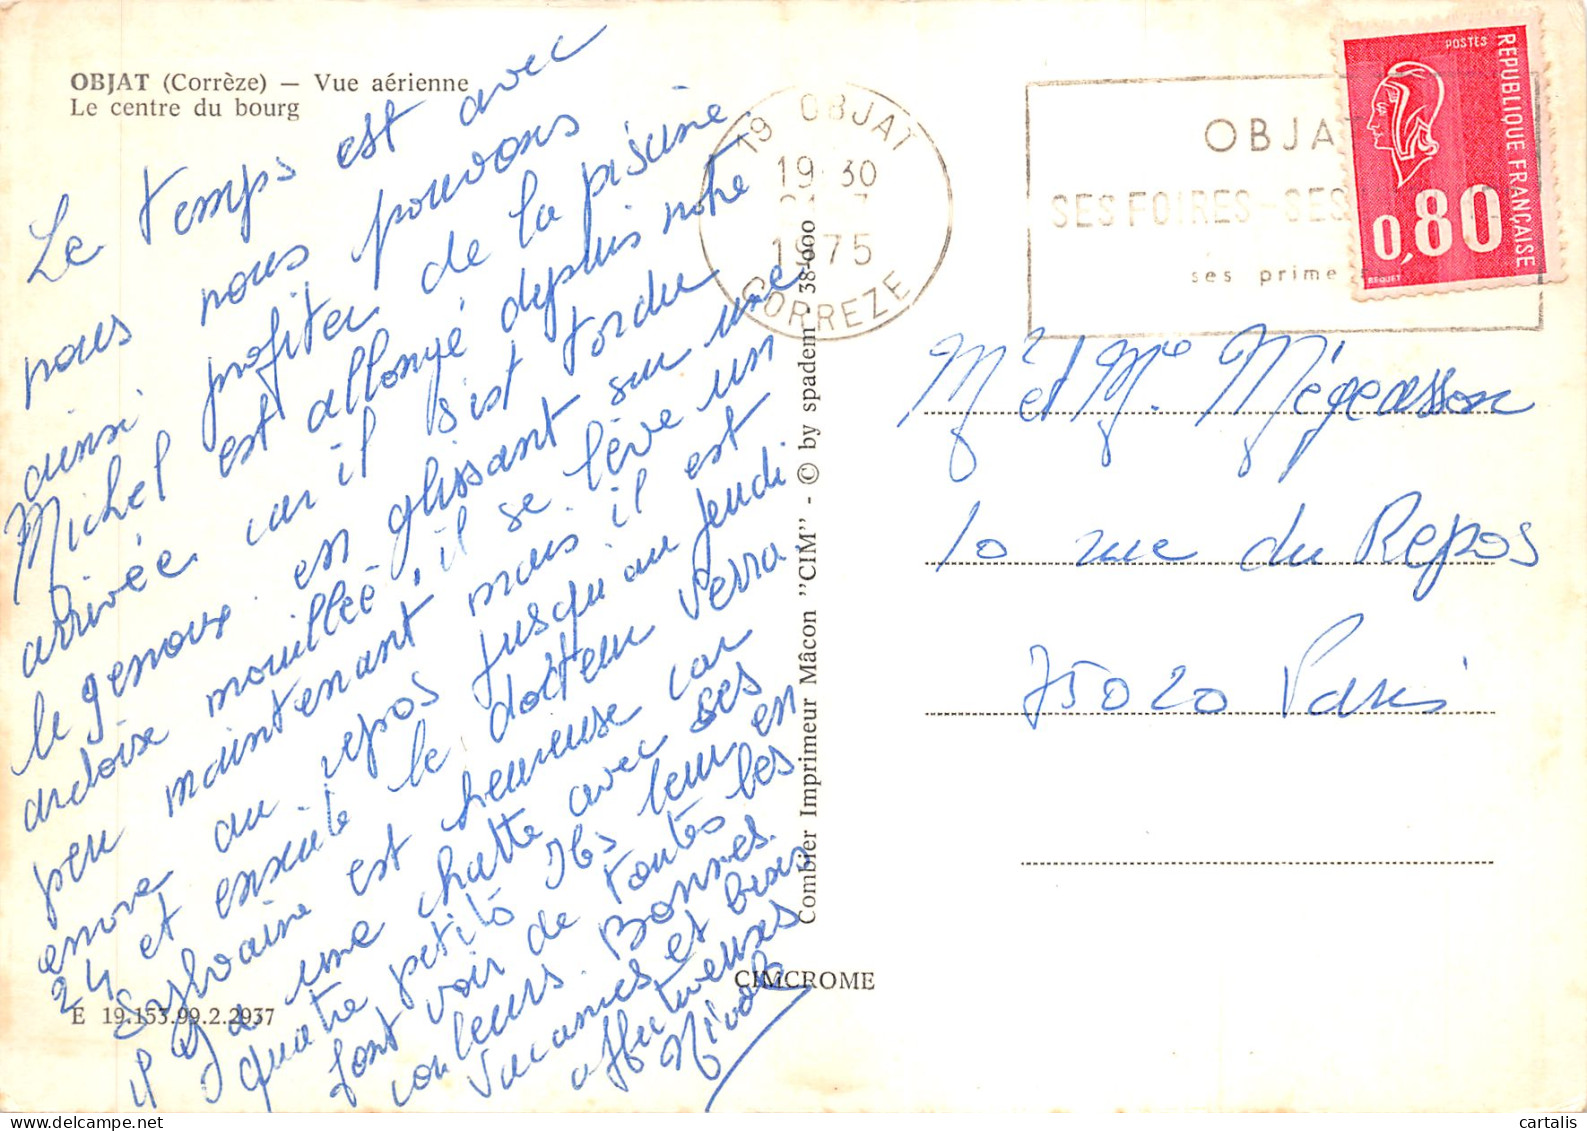 OBJAT (Corrèze) — Vue aérienne
Le centre du bourg
Le temps est avec
nous nous pouvons
ainsi profiter de la piscine
Michel est allongé depuis notre
arrivée car il s'est tordu
le genoux en glissant sur une
ardoise mouillée, il se lève un
peu maintenant mais il est
encore au repos jusqu'au jeudi
24 et ensuite le docteur verra.
Sylvaine est heureuse car
il y a une chatte avec ses
quatre petits ils leur en
font voir de toutes les
couleurs. Bonnes
vacances et bises
affectueuses
Nicole
E 19.153.99.2.2937
CIMCROME
Combier Imprimeur Mâcon "CIM" - © by spadem - 38-000
19 OBJAT
19·30
7
1975
CORREZE
OBJA
SES FOIRES - SES
ses prime
POSTES
REPUBLIQUE FRANÇAISE
0,80
BEQUET
Mr et Me. Mégeasson
10 rue du Repos
75020 Paris
cartalis